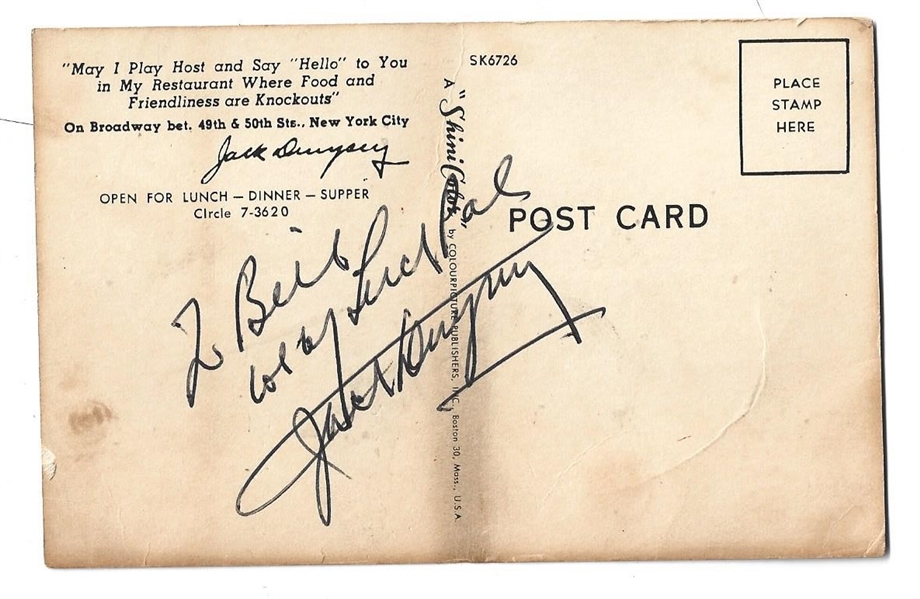 "May I Play Host and Say "Hello" to You
in My Restaurant Where Food and
Friendliness are Knockouts"
On Broadway bet. 49th & 50th Sts., New York City
Jack Dempsey
OPEN FOR LUNCH — DINNER — SUPPER
CIrcle 7-3620
To Bill
Luck Pal
Jack Dempsey
SK6726
A "ShiniColor" by COLOURPICTURE PUBLISHERS, INC., Boston 30, Mass., U.S.A.
POST CARD
PLACE
STAMP
HERE